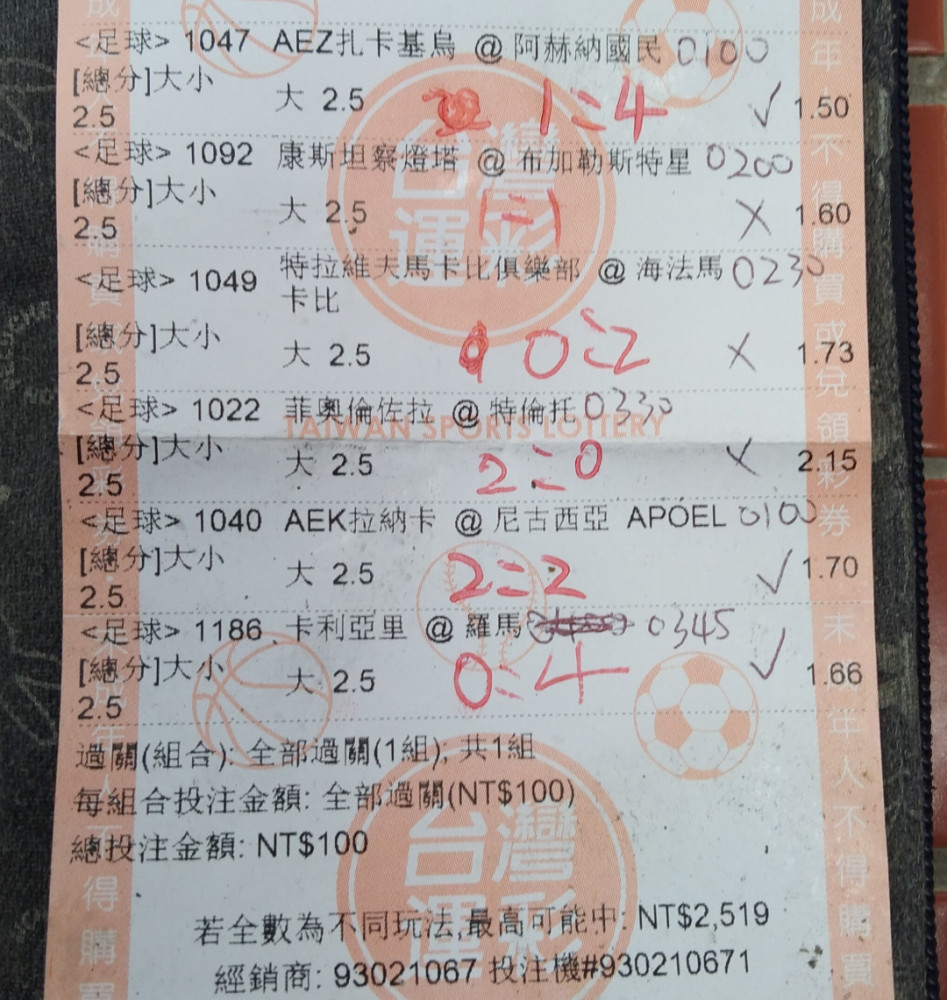 <足球> 1047 AEZ扎卡基烏 @ 阿赫納國民 0100
[總分]大小 大 2.5 1:4 ✓ 1.50
2.5
<足球> 1092 康斯坦察燈塔 @ 布加勒斯特星 0200
[總分]大小 大 2.5 1:1 X 1.60
2.5
<足球> 1049 特拉維夫馬卡比俱樂部 @ 海法馬 0230
卡比
[總分]大小 大 2.5 0:2 X 1.73
2.5
<足球> 1022 菲奧倫佐拉 @ 特倫托 0330
TAIWAN SPORTS LOTTERY
[總分]大小 大 2.5 2:0 X 2.15
2.5
<足球> 1040 AEK拉納卡 @ 尼古西亞 APOEL 0100
[總分]大小 大 2.5 2:2 ✓ 1.70
2.5
<足球> 1186 卡利亞里 @ 羅馬 0345
[總分]大小 大 2.5 0:4 ✓ 1.66
2.5
過關(組合): 全部過關(1組); 共1組
每組合投注金額: 全部過關(NT$100)
總投注金額: NT$100
若全數為不同玩法,最高可能中: NT$2,519
經銷商: 93021067 投注機#930210671
台灣
運彩
台灣
運彩
成年人不得購買或兌領彩券
未成年人不得購買